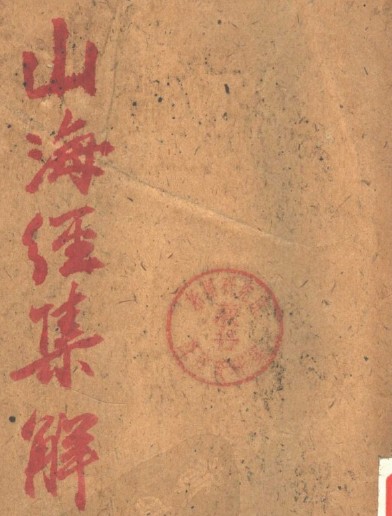 山海经集解